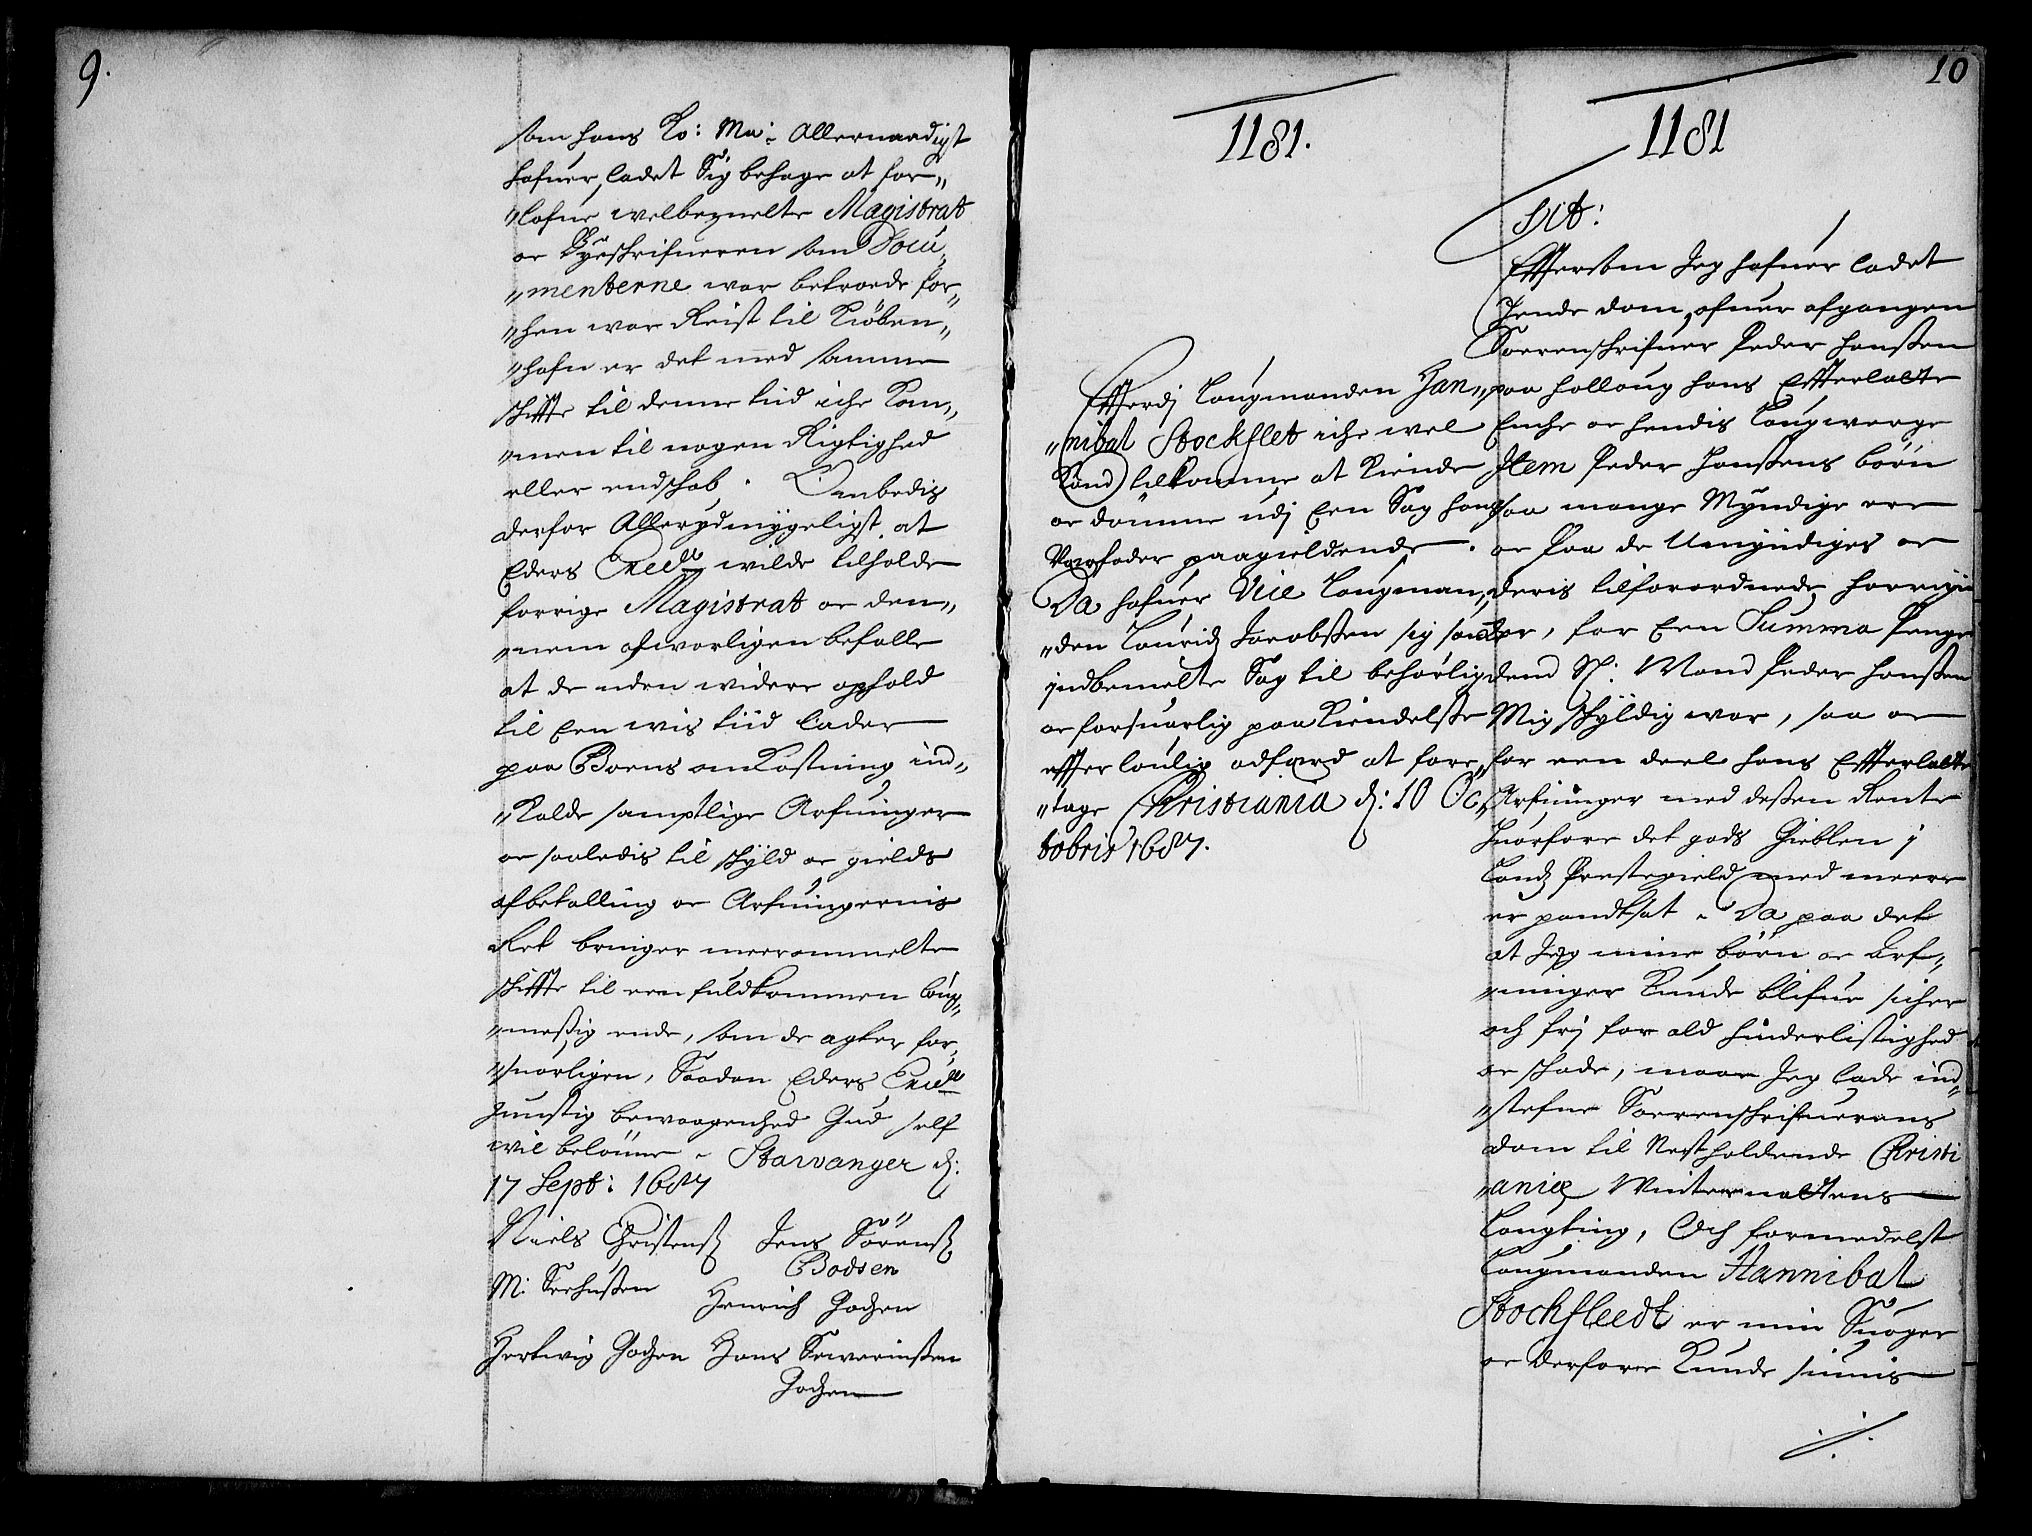 9.
som hans Ko: Ma: Allernaadigst
hafuer ladet Sig behage at for„
„lofue welbemelte Magistrat
oc Byeskrifueren som Docu„
„menterne war betroede for„
„hen war Reist til Kiöben„
„hafn er det med samme
skiffte til denne tiid iche Kom„
„men til nogen Rigtighed
eller endskab. Ombedis
derfor Allerydmygeligst at
Eders wilde tilholde
forrige Magistrat oc den„
„nem alvorligen befalle
at de uden widere ophold
til Een wis tiid lader
paa Boens omKostning ind„
„Kalde samptlige Arfuinger
oc saaledis til skyld oc gields
afbetalling oc Arfuingernis
Ret bringer meerommelte
skiffte til een fuldkommen loug„
„meßig ende, som de agter for„
„suarligen, Saadan Eders
gunstig bewaagenhed Gud self
wil belönne. Stawanger d:
17 Sept: 1687
Niels Christens: Jens Sörens:
Bodsen
M: Seehußen Henrich Gochen
Hertwig Gochen Hans Sewerinßen
Gochen
10
1181.
Efferdj Laugmanden Han„
„nibal Stockflet iche wel
Kand tilkomme at Kiende
oc dømme udj Een Sag hans
Varfader paagieldende.
Da hafuer Vice Laugman„
„den Lauridz Jacobßen sig samt
indbemelte Sag til behørlig
oc forsuarlig paaKiendelße
effter louglig adfærd at fore„
„tage Christiania d: 10 Oc„
tobris 1687.
1181
Sit:
Effersom Jeg hafuer ladet
hende dom ofuer afgangen
Sorenskrifuer Peder Hanßen
paa Halloug hans Effterlatte
Enche oc hendis Laugwerge
Item Peder Hanßens børn
saa mange Myndige ere
oc Paa de Umyndiges oc
deris tilforordnede formyn„
der, for Een Summa Penge
dend Sl: Mand Peder Hanßen
Mig skyldig war, saa oc
for een deel hans Effterlatte
Arfuinger med deßen Rente
huorfore det gods Gieblen j
Landz Prestegield med meere
er pandtsat. Da paa det
at Jeg mine børn oc Arf„
„uinger Kunde blifue sicher
och frj for ald hinderlistighed
oc skade, maae Jeg lade ind„
„stefne Sorenskrifuerens
dom til Nestholdende Christi
„aniæ Winternattens
Laugting, Och formedelst
Laugmanden Hannibal
Stockfleedt er min Suoger
oc derfore Kunde siunis